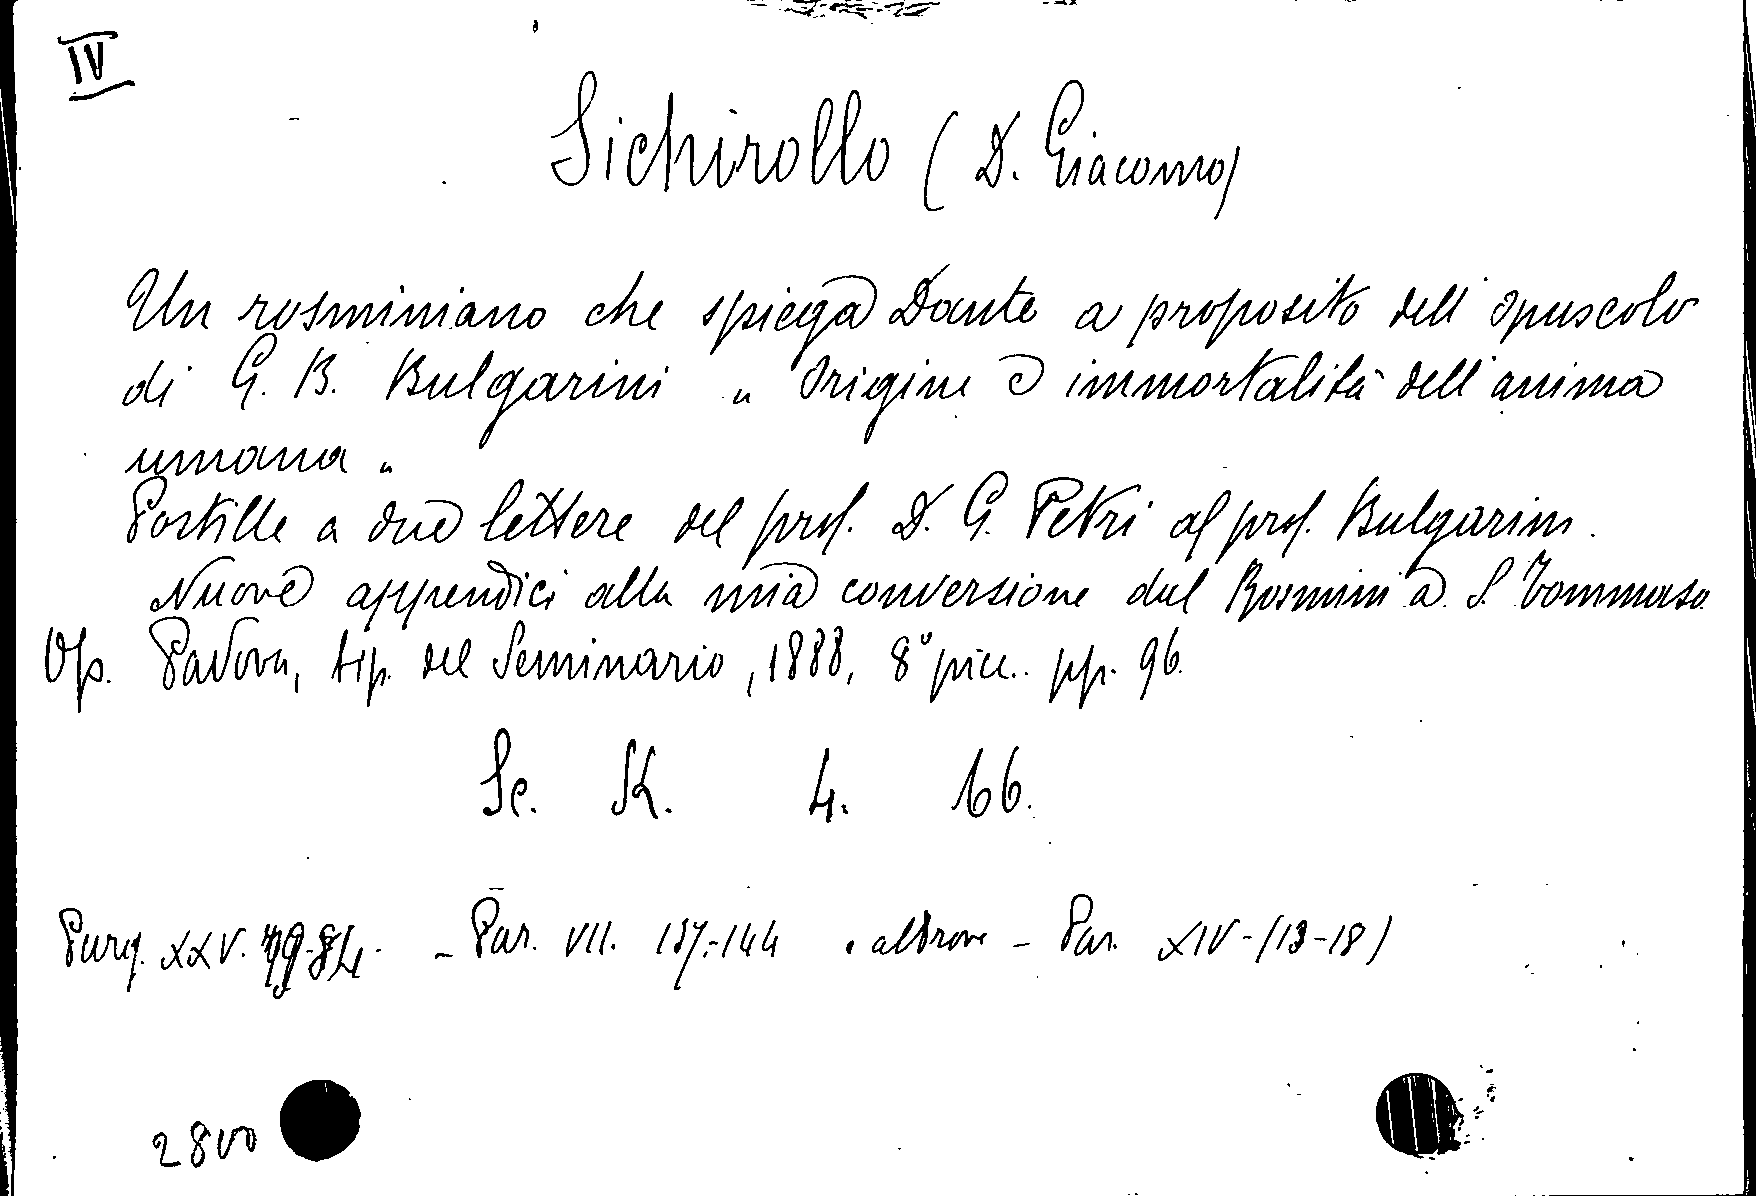 IV
Sichirollo ( D. Giacomo)
Un rosminiano che spiega Dante a proposito dell' opuscolo
di G. B. Bulgarini " Origine e immortalità dell' anima
umana "
Postille a due lettere del prof. D. G. Petri al prof. Bulgarini.
Nuove appendici alla mia conversione dal Rosmini a S. Tommaso
Op. Padova, tip. del Seminario, 1888, 8° picc. pp. 96.
Sc. K. 4. 66.
Purg. XXV. 79-84. - Par. VII. 137-144 e altrove - Par. XIV-(13-18)